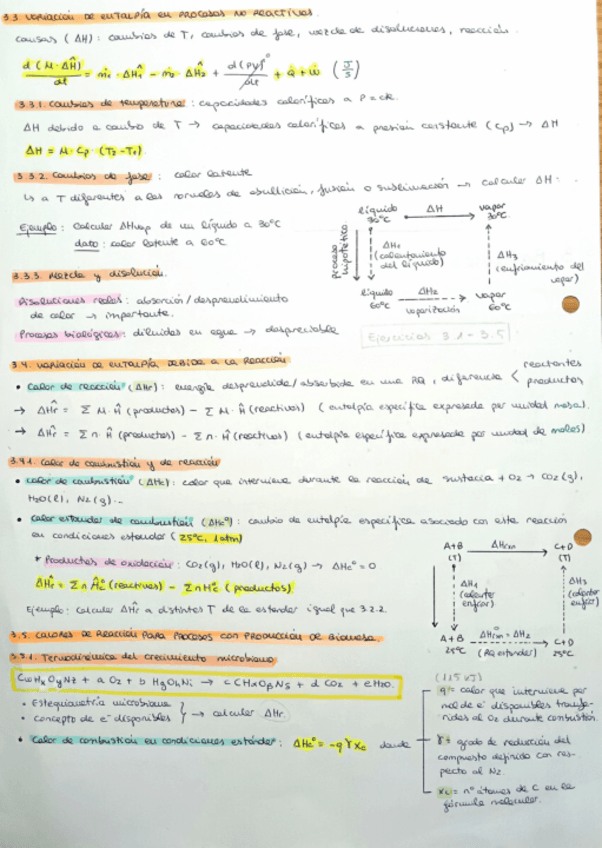 3.3 VARIACIÓN DE ENTALPÍA EN PROCESOS NO REACTIVOS.
Causas (ΔH): cambios de T, cambios de fase, mezcla de disoluciones, reacción.
d(M·ΔĤ)/dt = ṁ₁·ΔĤ₁ - ṁ₂·ΔĤ₂ + d(PV)⁰/dt + Q̇ + Ẇ (J/s)
3.3.1. Cambios de temperatura: capacidades caloríficas a P=ctc.
ΔH debido a cambio de T → capacidades caloríficas a presión constante (Cp) → ΔH
ΔH = M·Cp·(T₂-T₁)
3.3.2. Cambios de fase: calor latente
↳ a T diferentes a las normales de ebullición, fusión o sublimación → calcular ΔH.
Ejemplo: Calcular ΔHvap de un líquido a 30ºC
dato: calor latente a 60ºC
líquido 30ºC ΔH vapor 30ºC
proceso hipotético
ΔH₁ (calentamiento del líquido)
ΔH₃ (enfriamiento del vapor)
líquido 60ºC ΔH₂ vaporización vapor 60ºC
3.3.3. Mezcla y disolución.
Disoluciones reales: absorción/desprendimiento
de calor → importante.
Procesos biológicos: diluidas en agua → despreciable
Ejercicios 3.1-3.5
3.4. VARIACIÓN DE ENTALPÍA DEBIDA A LA REACCIÓN
• Calor de reacción (ΔHr): energía desprendida/absorbida en una RQ, diferencia < reactantes productos
→ ΔĤr = Σ M·Ĥ (productos) - Σ M·Ĥ (reactivos) (entalpía específica expresada por unidad masa).
→ ΔĤr = Σ n·Ĥ (productos) - Σ n·Ĥ (reactivos) (entalpía específica expresada por unidad de moles).
3.4.1. Calor de combustión y de reacción
• Calor de combustión (ΔHc): calor que interviene durante la reacción de sustancia + O₂ → CO₂(g),
H₂O(l), N₂(g)...
• Calor estándar de combustión (ΔHcº): cambio de entalpía específica asociado con esta reacción
en condiciones estándar (25ºC, 1atm)
* Productos de oxidación: CO₂(g), H₂O(l), N₂(g) → ΔHcº=0
ΔĤr = Σ n Ĥcº (reactivos) - Σ n Hcº (productos)
Ejemplo: calcular ΔĤr a distintas T de la estándar igual que 3.2.2.
A+B (T) ΔHrxn C+D (T)
ΔH₁ (calentar enfriar)
ΔH₃ (calentar enfriar)
A+B 25ºC ΔHºrxn = ΔH₂ (RQ estándar) C+D 25ºC
3.5. CALORES DE REACCIÓN PARA PROCESOS CON PRODUCCIÓN DE BIOMASA.
3.5.1. Termodinámica del crecimiento microbiano
CwHxOyNz + a O₂ + b HgOhNi → c CHαOβNδ + d CO₂ + e H₂O.
• Estequiometría microbiana
• concepto de e⁻ disponibles } → calcular ΔHr.
• Calor de combustión en condiciones estándar: ΔHcº = -q γ xc donde
(115 kJ)
q = calor que interviene por
mol de e⁻ disponibles transfe-
ridos al O₂ durante combustión.
γ = grado de reducción del
compuesto definido con res-
pecto al N₂.
xc = nº átomos de C en la
fórmula molecular.